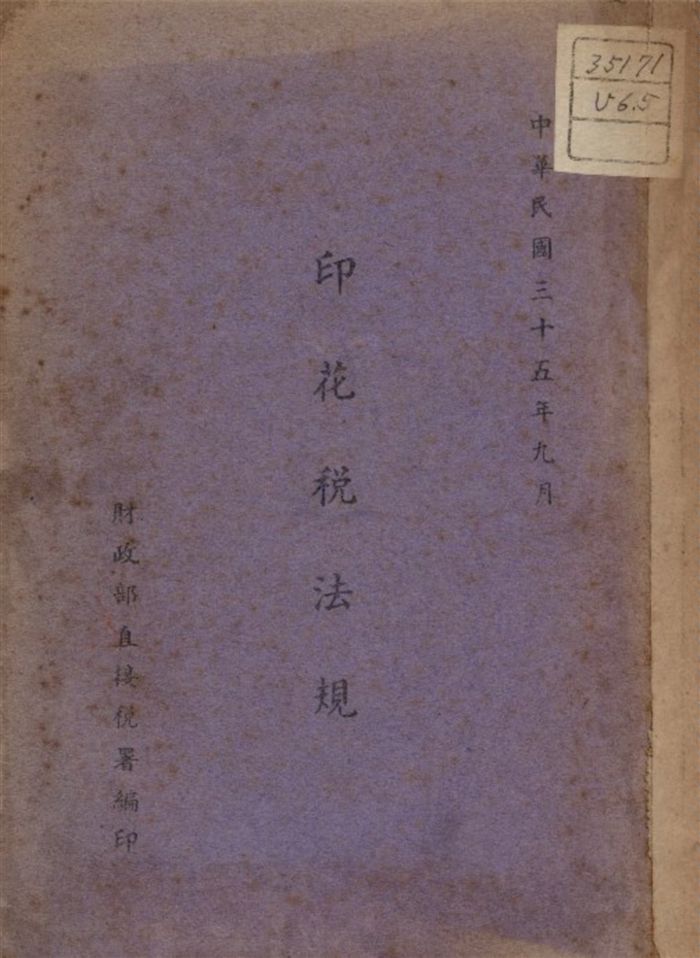 35171
V6.5
中華民國三十五年九月
印花税法規
財政部直接税署編印